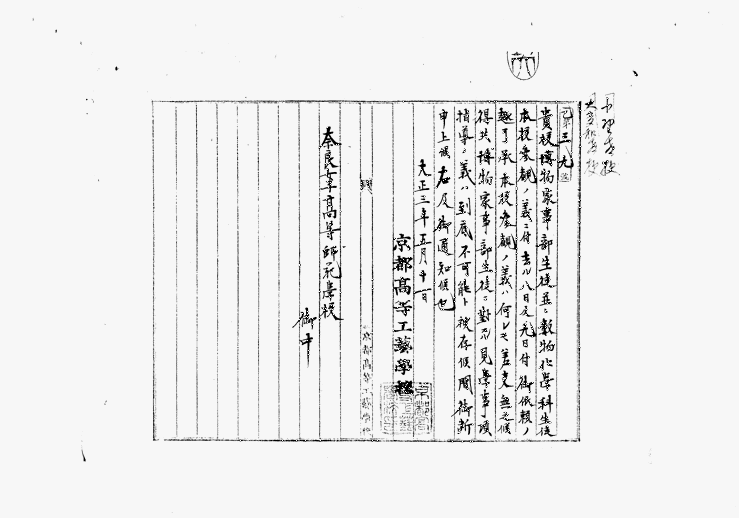 乙第三九号
貴校博物家事部生徒並ニ数物化学科生徒
本校参観ノ義ニ付去ル八日及九日付御依頼ノ
趣了承本校参観ノ義ハ何レモ差支無之候
得共博物家事部生徒ニ對スル見學事項
指導ノ義ハ到底不可能ト被存候間御断
申上候右及御通知候也
大正三年五月十一日
京都高等工藝學校
奈良女子高等師範學校
御中
京都高等工藝學校